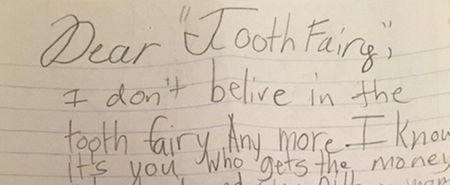 Dear "Tooth Fairy",
I don't belive in the
tooth fairy Any more. I know
it's you who gets the money